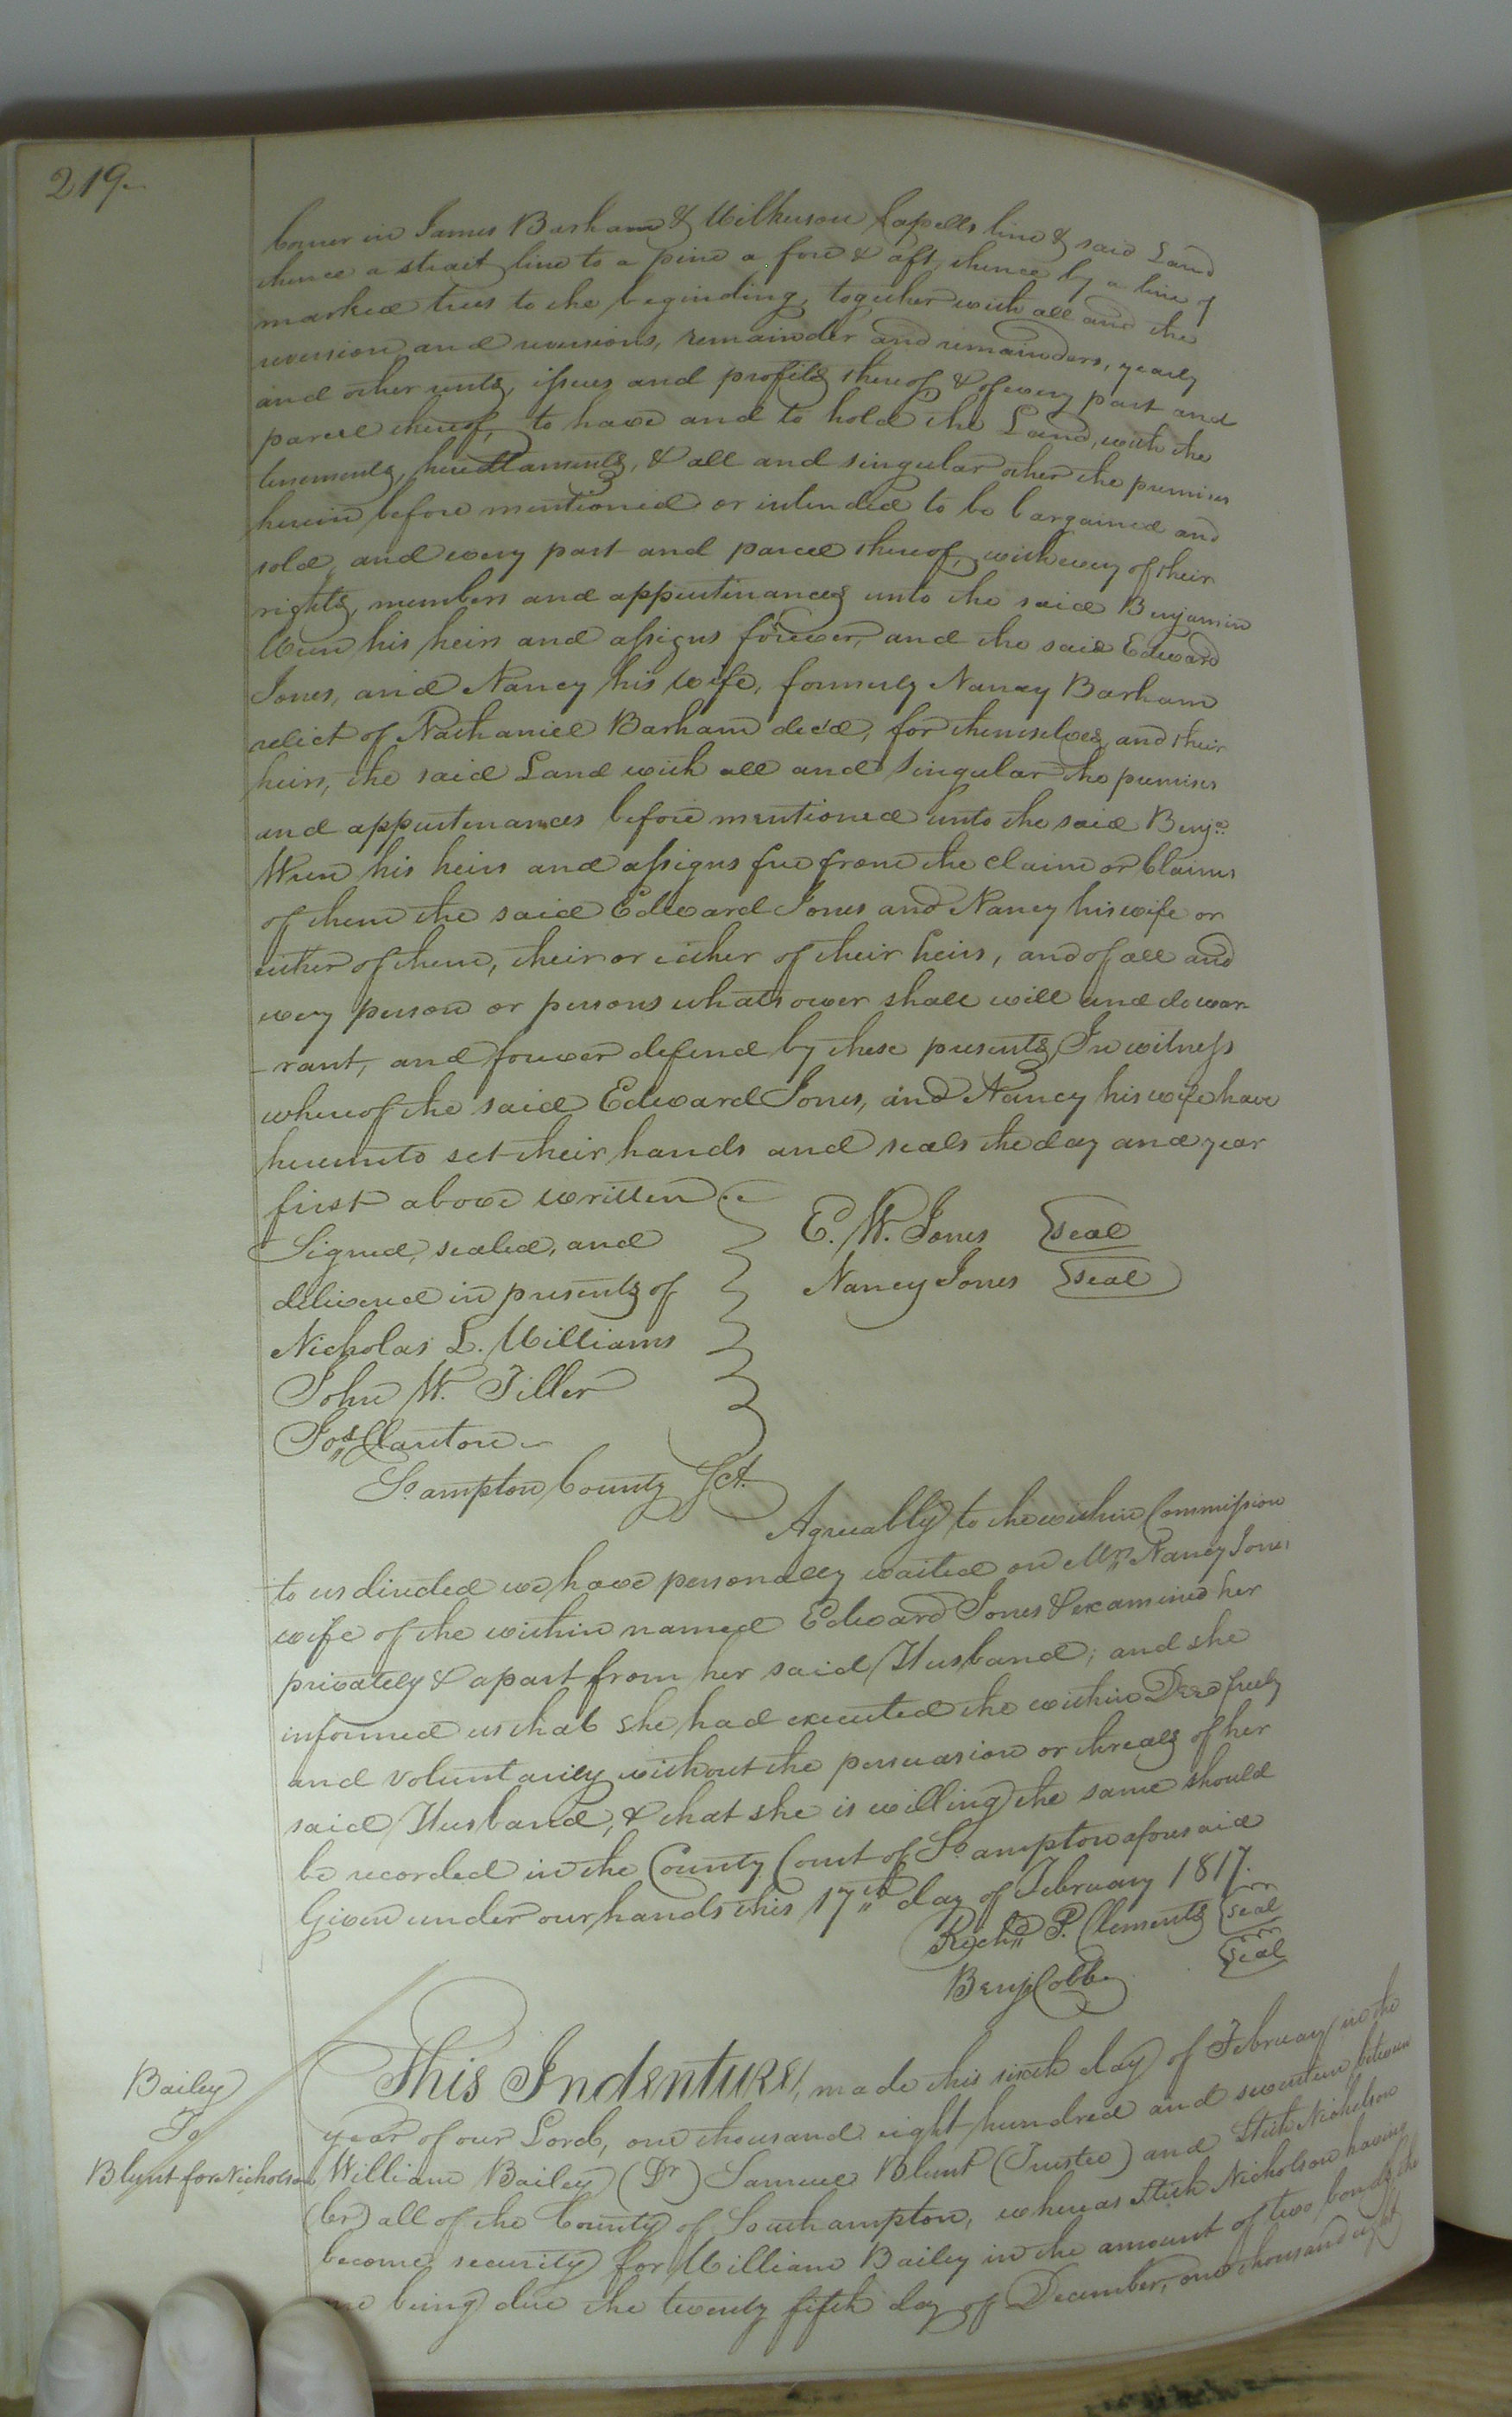 219.
Corner in James Barham & Wilkerson Capells line & said Land
thence a strait line to a pine a fore & aft, thence by a line of
marked trees to the beginding, together with all and the
reversion and reversions, remainder and remainders, yearly
and other rents, issues and profits thereof & of every part and
parcel thereof, to have and to hold the Land, with the
tenements, heredtaments, & all and singular other the premises
herein before mentioned or intended to be bargained and
sold, and every part and parcel thereof, with every of their
rights, members and appertinances unto the said Benjamin
Wren his heirs and assigns forever, and the said Edward
Jones, and Nancy his wife, formerly Nancy Barham
relict of Nathaniel Barham dec'd, for themselves, and their
heirs, the said Land with all and singular the premises
and appertenances before mentioned unto the said Benja.
Wren his heirs and assigns free from the claim or Claims
of them the said Edward Jones and Nancy his wife or
either of them, their or either of their heirs, and of all and
every person or persons whatsoever shall will and do war
-rant, and forever defend by these presents, In witness
whereof the said Edward Jones, and Nancy his wife have
hereunto set their hands and seals the day and year
first above written.
Signed, sealed, and
delivered in presents of
Nicholas L. Williams
John W. Tiller
Jos. Clanton
E. W. Jones seal
Nancy Jones seal
So.ampton County Sct.
Agreeably to the within Commission
to us directed we have personally waited on Mrs. Nancy Jones
wife of the within named Edward Jones & examined her
privately & apart from her said Husband; and she
informed us that she had executed the within Deed freely
and voluntarily without the persuasion or threats of her
said Husband, & that she is willing the same should
be recorded in the County Court of So.ampton aforesaid
Given under our hands this 17th day of February 1817.
Richd. P. Clements seal
Benj Cobb seal
Bailey
To
Blunt for Nicholson
This Indenture, made this sixth day of February in the
year of our Lord, one thousand eight hundred and seventeen between
William Bailey (Dr) Samuel Blunt (Trustee) and Stith Nicholson
(Cr) all of the County of Southampton, whereas Stith Nicholson having
become security for William Bailey in the amount of two bonds, the
one being due the twenty fifth day of December, one thousand eight